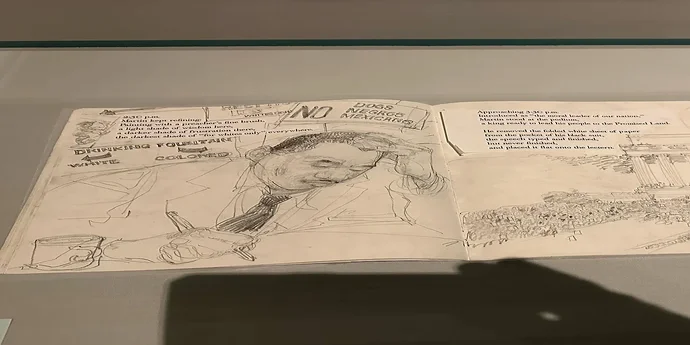 2:30 p.m.
Martin kept refining:
Painting with a preacher's fine brush,
a light shade of wisdom here,
a darker shade of frustration there,
the darkest shade of "for whites only" everywhere.
NO
DOGS
NEGROS
MEXICANS
DRINKING FOUNTAIN
WHITE COLORED
Approaching 3:30 p.m.
Introduced as "the moral leader of our nation,"
Martin stood at the podium,
a king ready to lead his people to the Promised Land.
He removed the folded white sheet of paper
from the pocket of his black suit,
the speech typed and finished,
but never finished,
and placed it flat onto the lectern.